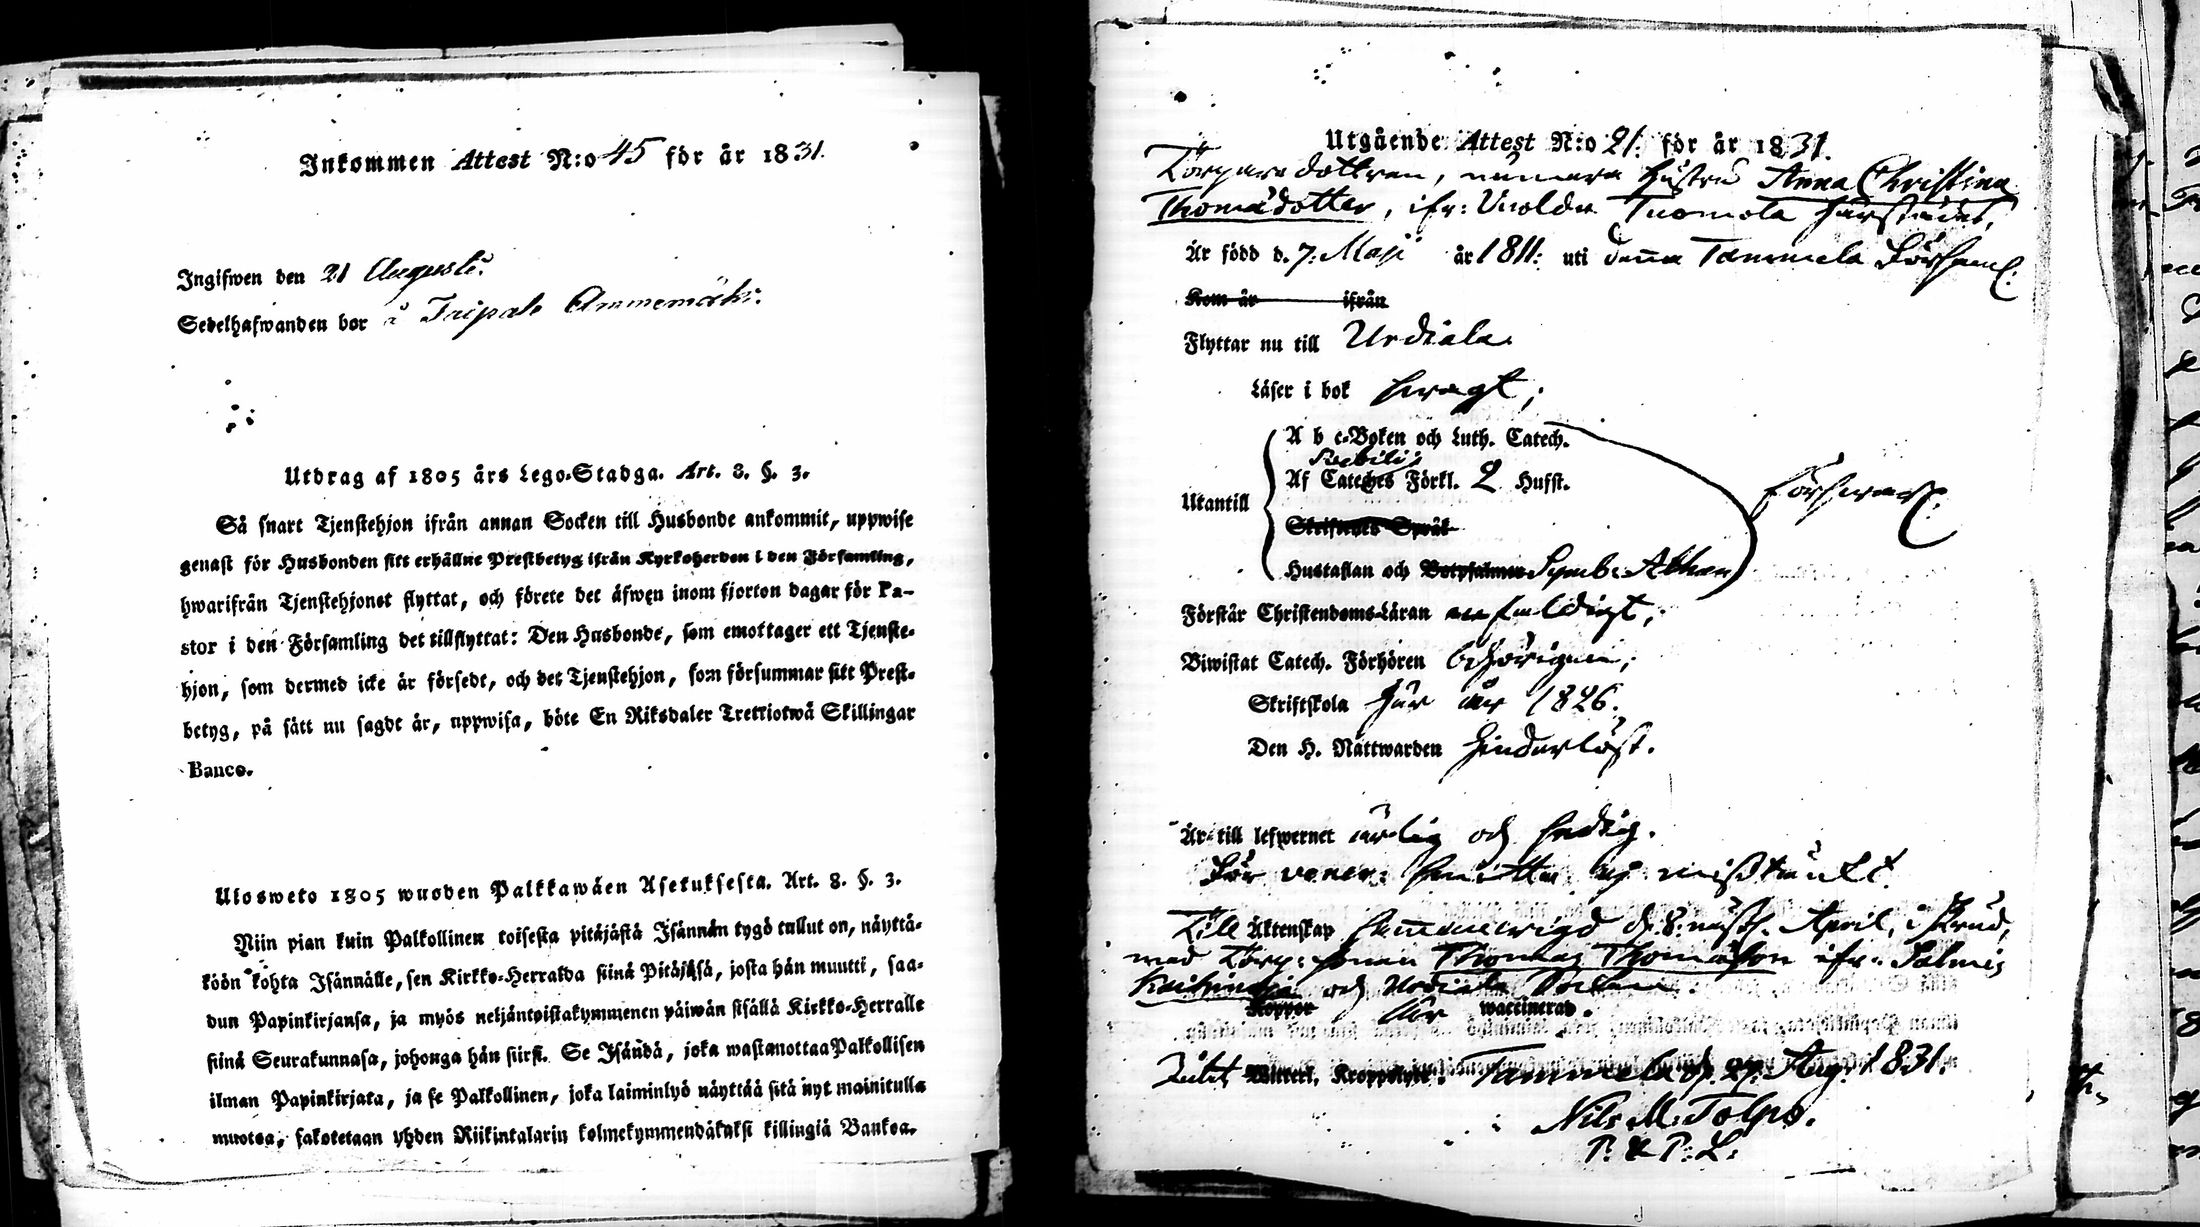 Inkommen Attest N:o 45 för år 1831.
Ingifwen den 21 Augusti.
Sedelhafwanden bor å
Utdrag af 1805 års Lego-Stadga. Art. 8. §. 3.
Så snart Tjenstehjon ifrån annan Socken till Husbonde ankommit, uppwise
genast för Husbonden sitt erhällne Prestbetyg ifrån Kyrkoherden i den Församling,
hwarifrån Tjenstehjonet flyttat, och förete det äfwen inom fjorton dagar för Pa-
stor i den Församling det tillflyttat: Den Husbonde, som emottager ett Tjenste-
hjon, som dermed icke är försedt, och det Tjenstehjon, som försummar sitt Prest-
betyg, på sätt nu sagdt är, uppwisa, böte En Riksdaler Trettiotwå Skillingar
Banco.
Ulosweto 1805 wuoden Palkkawäen Asetuksesta. Art. 8. §. 3.
Niin pian kuin Palkollinen toisesta pitäjästä Isännän tygö tullut on, näyttä-
köön kohta Isännälle, sen Kirkko-Herralda siinä Pitäjäsä, josta hän muutti, saa-
dun Papinkirjansa, ja myös neljäntoistakymmenen päiwän sisällä Kirkko-Herralle
siinä Seurakunnasa, johonga hän siirsi. Se Isändä, joka wastanottaa Palkollisen
ilman Papinkirjata, ja se Palkollinen, joka laiminlyö näyttää sitä nyt mainitulla
muotoa, sakotetaan yhden Riikintalarin kolmekymmendäkaksi killingiä Bankoa.
Utgående Attest N:o 21. för år 1831.
Torparedottren, numera hustru Anna Christina
Thomädotter, ifr: Tuomola härstädes,
Är född d. 7: Maji år 1811: uti denna Tammela Församl:
Kom år ifrån
Flyttar nu till Urdiala
Läser i bok swagt;
Utantill
A b c-Boken och Luth. Catech.
Af Cateches Förkl. 2 Hufst.
Skriftens Språk
Hustaflan och Botpsalmer Symb: Athan
Förswarl:
Förstår Christendoms-Läran enfaldigt;
Biwistat Catech. Förhören behörigen;
Skriftskola här år 1826.
Den H. Nattwarden hinderlöst.
Är till lefwernet ärlig och fredig.
För vener: smitta ej misstänkt.
Till Äktenskap sammanwigd d. 8: April, i
med Torp: sonen Thomas Thomasson ifr: Salmis
och Urdiala Socken.
Koppor är waccinerad.
Witterl. Kroppslyte. Tammela d. 27. Aug: 1831.
Nils M: Tolpo.
P: & P: L: